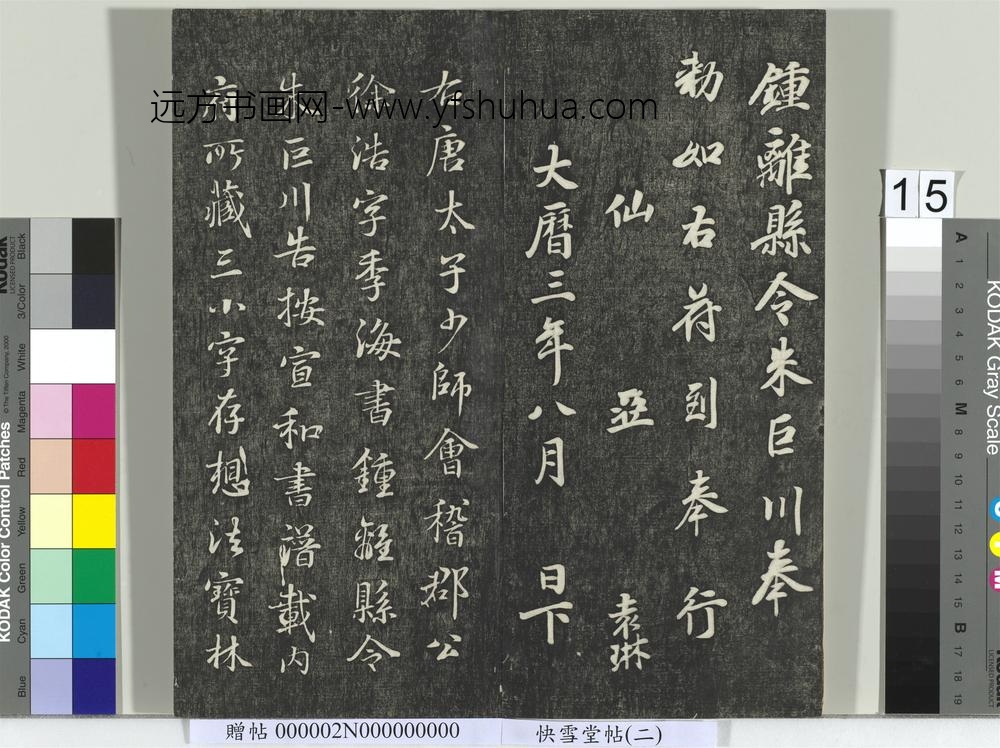 鍾離縣令朱巨川奉
勑如右符到奉行
仙 亞 袁琳
大曆三年八月 日下
右唐太子少師會稽郡公
徐浩字季海書鍾離縣令
朱巨川告按宣和書譜載內
府所藏三小字存想法寶林
远方书画网-www.yfshuhua.com
15
贈帖 000002N000000000
快雪堂帖(二)
KODAK Color Control Patches
© The Tiffen Company, 2000
Kodak
LICENSED PRODUCT
Blue
Cyan
Green
Yellow
Red
Magenta
White
3/Color
Black
KODAK Gray Scale
A 1 2 3 4 5 6 M 8 9 10 11 12 13 14 15 B 17 18 19